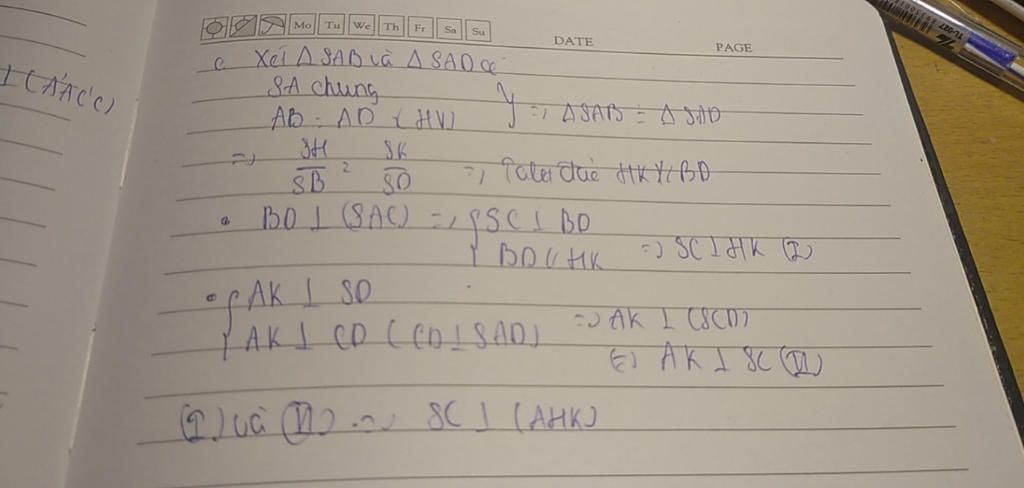 Mo Tu We Th Fr Sa Su
DATE PAGE
⊥ (A'ACC')
c Xét △SAB và △SAD có
SA chung
AB = AD (HV) } => △SAB = △SAD
=> SH/SB = SK/SD => Talet đảo HK // BD
• BD ⊥ (SAC) => { SC ⊥ BD
BD // HK => SC ⊥ HK (I)
• { AK ⊥ SD
AK ⊥ CD (CD ⊥ SAD) => AK ⊥ (SCD)
(=) AK ⊥ SC (II)
(I) và (II) => SC ⊥ (AHK)